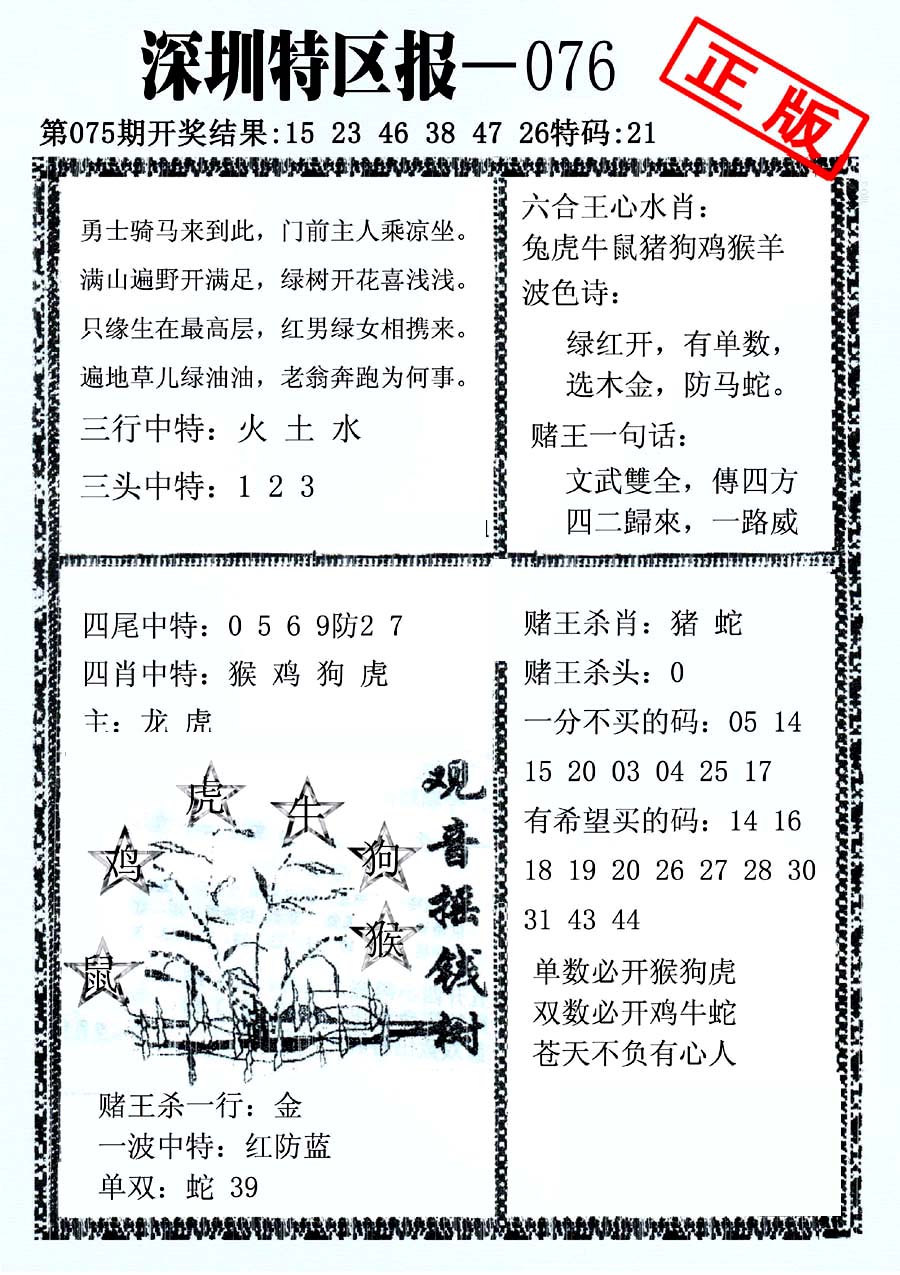 深圳特区报—076
正版
第075期开奖结果:15 23 46 38 47 26特码:21
勇士骑马来到此，门前主人乘凉坐。
满山遍野开满足，绿树开花喜浅浅。
只缘生在最高层，红男绿女相携来。
遍地草儿绿油油，老翁奔跑为何事。
三行中特：火 土 水
三头中特：1 2 3
六合王心水肖：
兔虎牛鼠猪狗鸡猴羊
波色诗：
绿红开，有单数，
选木金，防马蛇。
赌王一句话：
文武雙全，傳四方
四二歸來，一路威
四尾中特：0 5 6 9防2 7
四肖中特：猴 鸡 狗 虎
主：龙 虎
虎
牛
鸡
狗
猴
鼠
观音摇钱树
赌王杀一行：金
一波中特：红防蓝
单双：蛇 39
赌王杀肖：猪 蛇
赌王杀头：0
一分不买的码：05 14
15 20 03 04 25 17
有希望买的码：14 16
18 19 20 26 27 28 30
31 43 44
单数必开猴狗虎
双数必开鸡牛蛇
苍天不负有心人